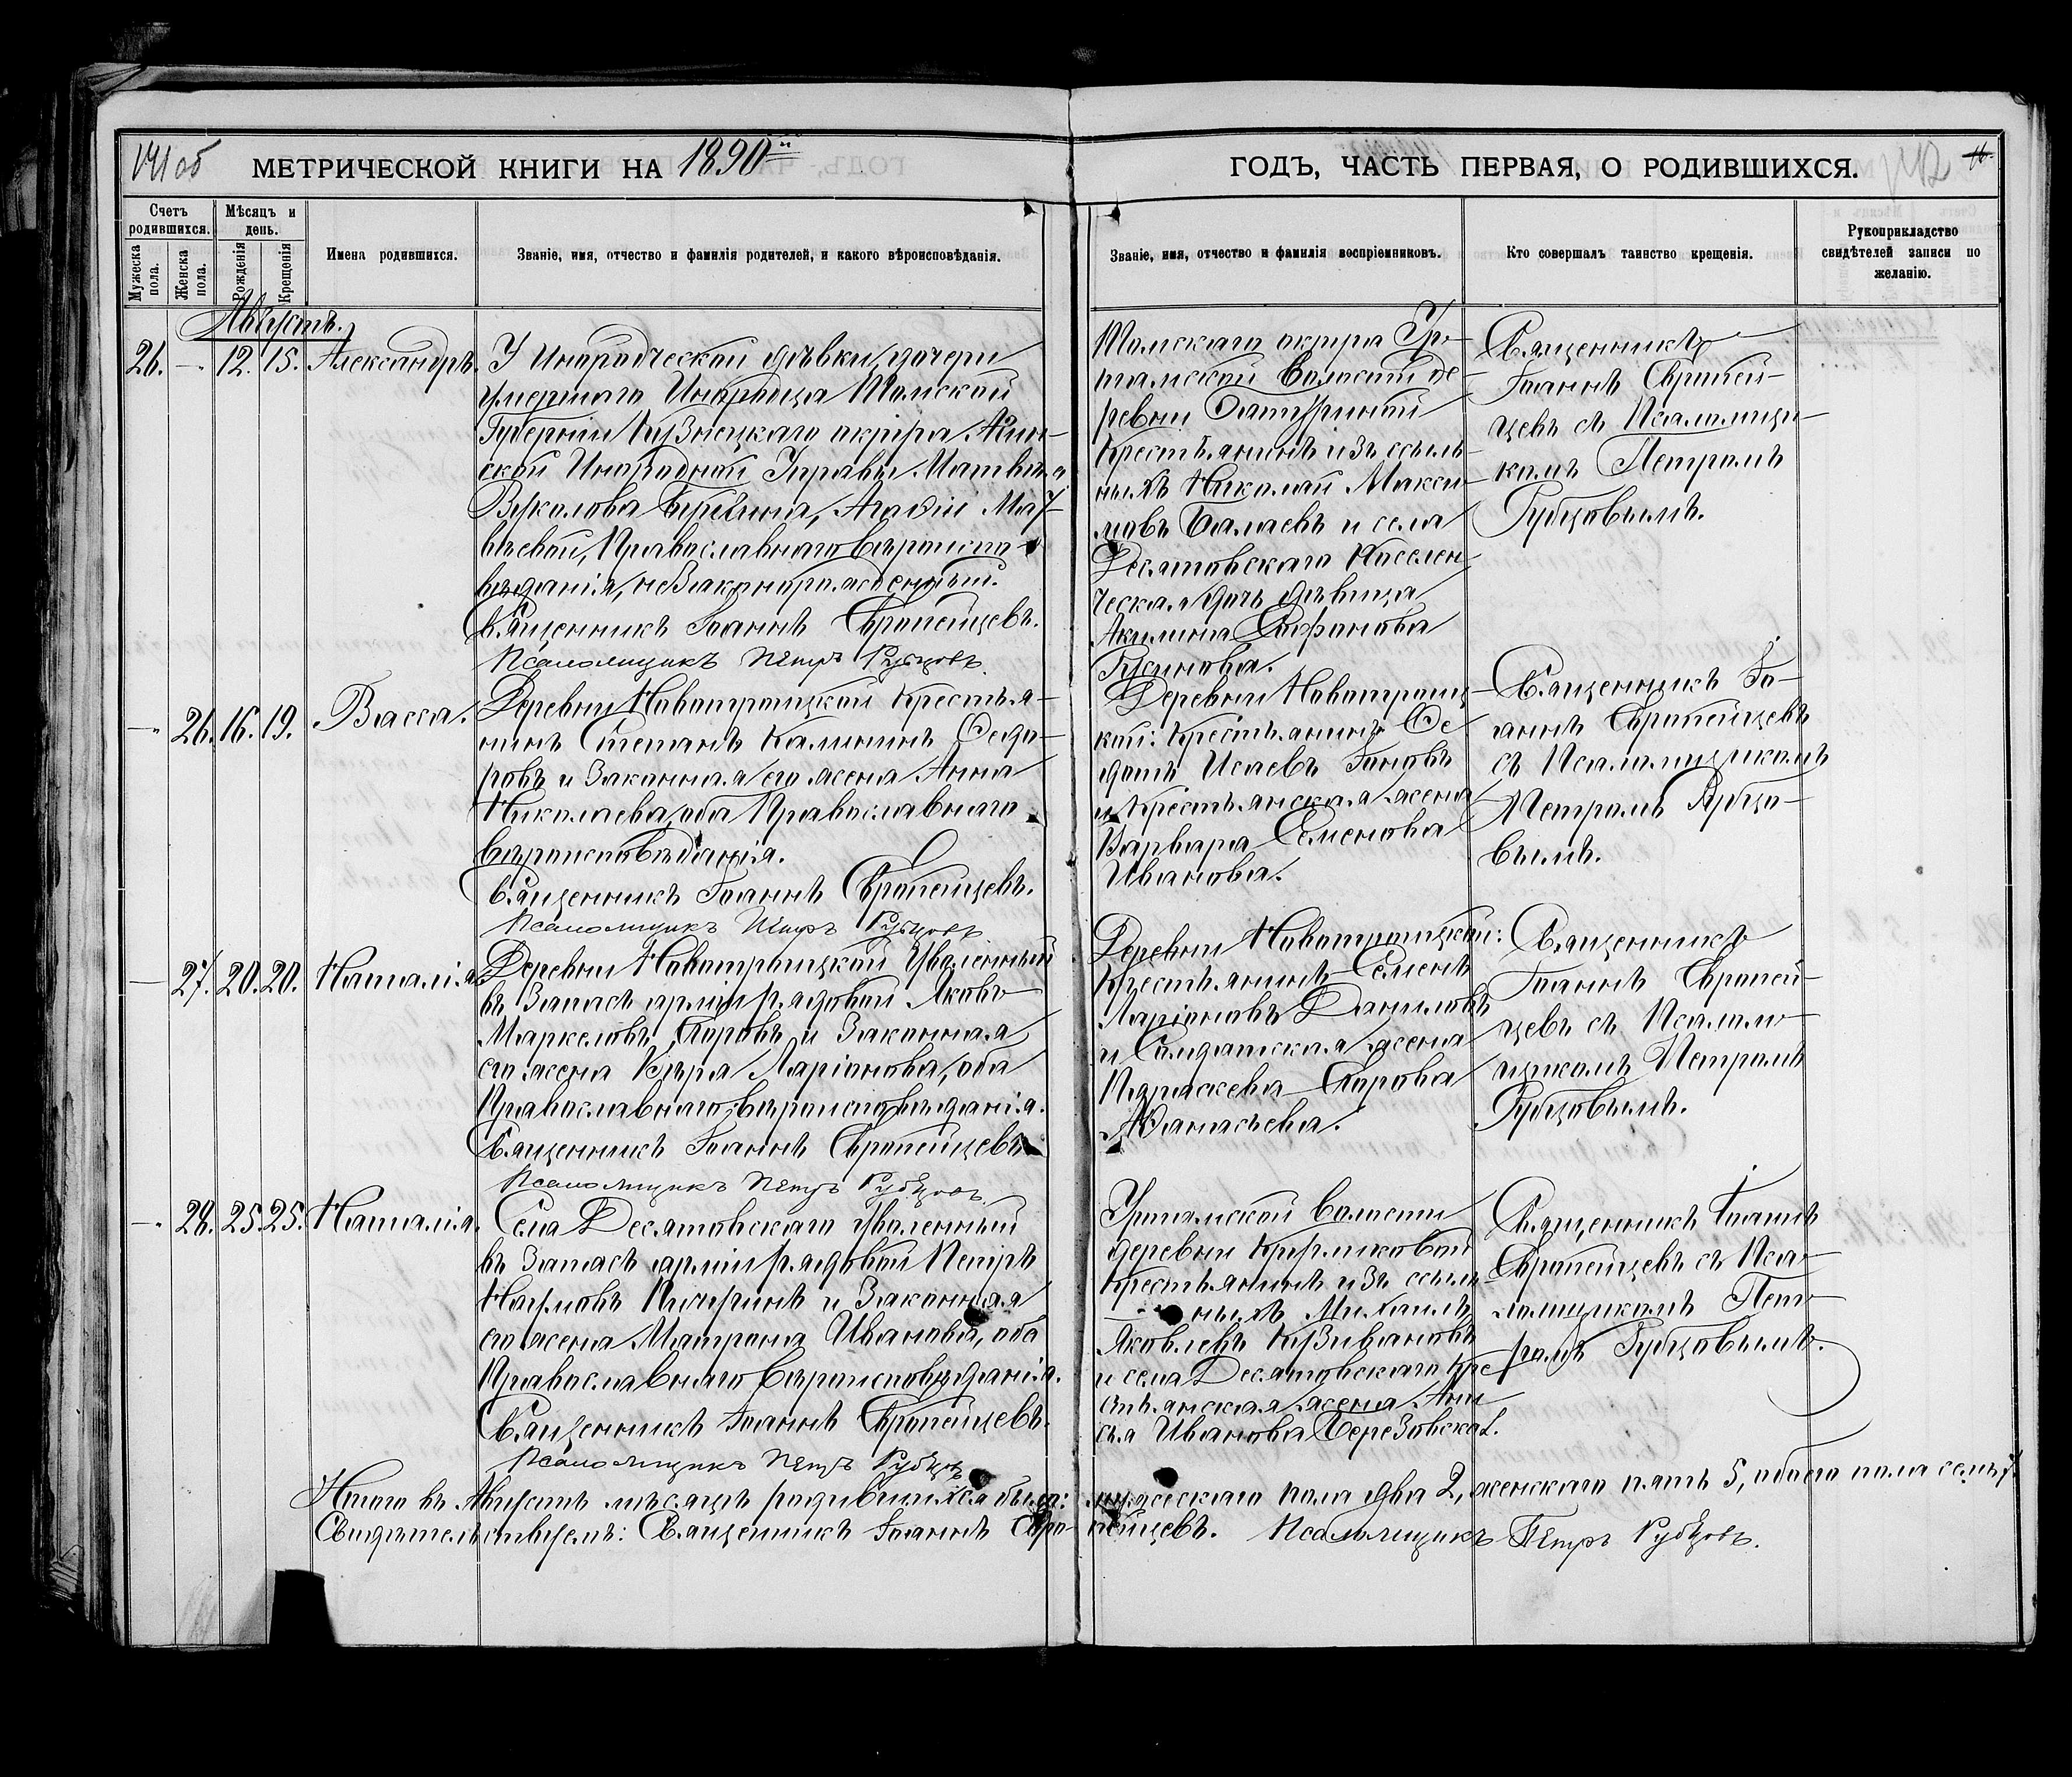 141 об
МЕТРИЧЕСКОЙ КНИГИ НА 1890й
ГОДЪ, ЧАСТЬ ПЕРВАЯ, О РОДИВШИХСЯ.
142
Счетъ родившихся.
Мужеска пола.
Женска пола.
Мѣсяцъ и день.
Рожденія
Крещенія
Имена родившихся.
Званіе, имя, отчество и фамилія родителей, и какого вѣроисповѣданія.
Званіе, имя, отчество и фамилія воспріемниковъ.
Кто совершалъ таинство крещенія.
Рукоприкладство
свидѣтелей записи по
желанію.
Августъ.
26. —. 12. 15. Александръ.
У Инородческой дѣвки, дочери
умершаго Инородца Томской
Губерніи Кузнецкаго округа
ской Инородной Управы Матвѣя
Вуколова Агафіи Мат-
вѣевой, Православнаго вѣроиспо-
вѣданія, незаконнорожденный.
Священникъ Іоаннъ Европейцевъ.
Псаломщикъ Петръ Рубцовъ.
Томскаго округа Ур-
тамской Волости де-
ревни Батуриной
Крестьянинъ изъ ссыль-
ныхъ Николай Макси-
мовъ Балаевъ и села
Десятовскаго Поселен-
ческая дочь дѣвица
Акилина
Русинова.
Священникъ
Іоаннъ Европей-
цевъ съ Псаломщи-
комъ Петромъ
Рубцовымъ.
—. 26. 16. 19. Васса.
Деревни Новотроицкой Крестья-
нинъ Степанъ Калининъ Федо-
ровъ и законная его жена Анна
Николаева, оба Православнаго
вѣроисповѣданія.
Священникъ Іоаннъ Европейцевъ.
Псаломщикъ Петръ Рубцовъ
Деревни Новотроиц-
кой: Крестьянинъ Ѳе-
дотъ Исаевъ
и Крестьянская жена
Варвара Семенова
Иванова.
Священникъ Іо-
аннъ Европейцевъ
съ Псаломщикомъ
Петромъ Рубцо-
вымъ.
— 27. 20. 20. Наталія.
Деревни Новотроицкой Уволенный
въ Запасъ арміи рядовой Яковъ
Маркеловъ и Законная
его жена Вѣра Ларіонова, оба
Православнаго вѣроисповѣданія.
Священникъ Іоаннъ Европейцевъ
Псаломщикъ Петръ Рубцовъ.
Деревни Новотроицкой:
Крестьянинъ Семенъ
Ларіоновъ Даниловъ
и Солдатская жена
Параскева
Аѳанасьева.
Священникъ
Іоаннъ Европей-
цевъ съ Псалом-
щикомъ Петромъ
Рубцовымъ.
—. 28. 25. 25. Наталія.
Села Десятовскаго Уволенный
въ Запасъ арміи рядовой Петръ
Наумовъ Пичугинъ и Законная
его жена Матрона Иванова, оба
Православнаго вѣроисповѣданія.
Священникъ Іоаннъ Европейцевъ.
Псаломщикъ Петръ Рубцовъ
Уртамской Волости
деревни
Крестьянинъ изъ ссыль-
ныхъ Михаилъ
Яковлевъ
и села Десятовскаго Кре-
стьянская жена Ани-
сья Иванова Березовская.
Священникъ Іоаннъ
Европейцевъ съ Пса-
ломщикомъ Пет-
ромъ Рубцовымъ.
Итого въ Августѣ мѣсяцѣ родившихся было: мужескаго пола два 2, женскаго пять 5, обоего пола семь 7.
Свидѣтельствуемъ: Священникъ Іоаннъ Европейцевъ. Псаломщикъ Петръ Рубцовъ.